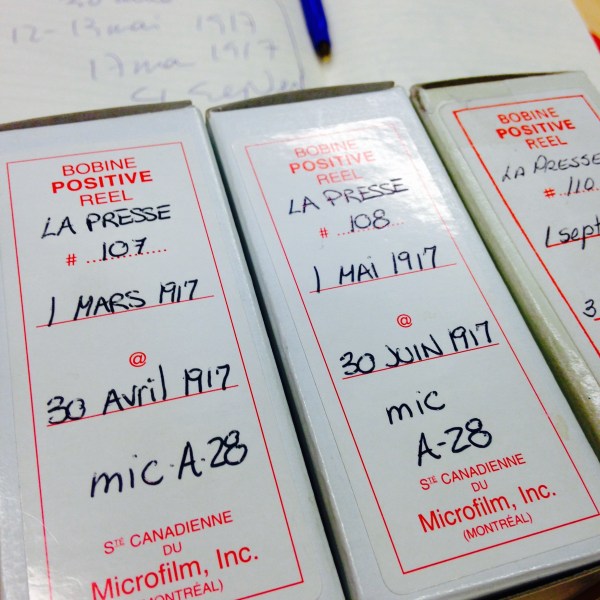 12-13 mai 1917
1917
BOBINE
POSITIVE
REEL
LA PRESSE
# 107
1 MARS 1917
@
30 Avril 1917
mic A-28
STÉ CANADIENNE
DU
Microfilm, Inc.
(MONTRÉAL)
BOBINE
POSITIVE
REEL
LA PRESSE
# 108
1 MAI 1917
@
30 JUIN 1917
mic
A-28
STÉ CANADIENNE
DU
Microfilm, Inc.
(MONTRÉAL)
BOBINE
POSITIVE
REEL
LA PRESSE
# 110
1 sept
3